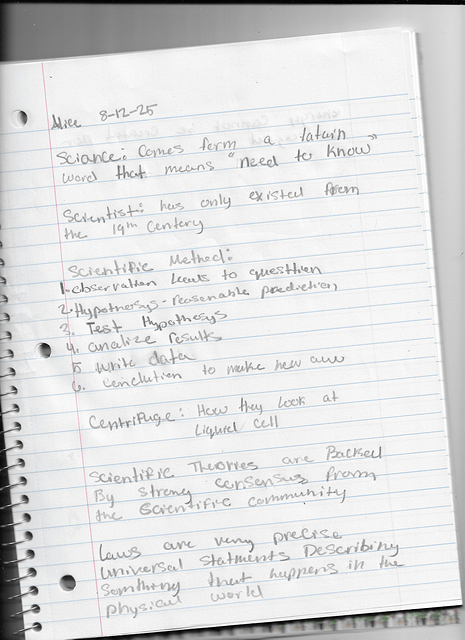 Alice 8-12-25
Sciance: Comes form a latain
word that means "need to know"
Scientist: has only existed from
the 19th Century
Scientific Method:
1. observation leads to questhion
2. Hypothesys - reasonable prediction
3. Test Hypothesys
4. analize results
5. write data
6. conclution to make new
Centrifuge: How they look at
Liquid cell
Scientific Theories are Backed
By strong consensus from
the Scientific community
Laws are very precise
universal statments Describing
Somthing that happens in the
physical world